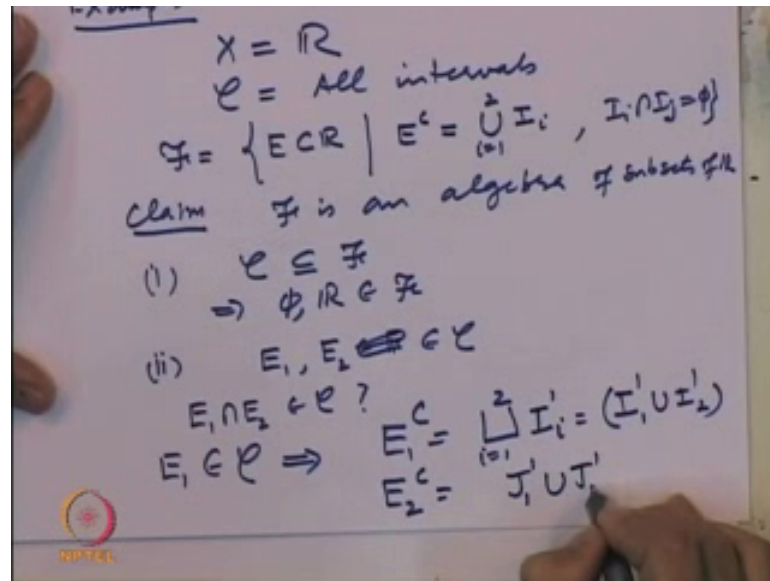 Example
X = ℝ
𝒞 = All intervals
ℱ = { E ⊂ ℝ | E^c = ⋃_{i=1}^{2} I_i , I_i ∩ I_j = ϕ}
Claim ℱ is an algebra of subsets of ℝ
(i) 𝒞 ⊆ ℱ
⇒ ϕ, ℝ ∈ ℱ
(ii) E_1, E_2 ∈ 𝒞
E_1 ∩ E_2 ∈ 𝒞 ?
E_1 ∈ 𝒞 ⇒ E_1^c = ⨆_{i=1}^{2} I'_i = (I'_1 ∪ I'_2)
E_2^c = J'_1 ∪ J'
NPTEL